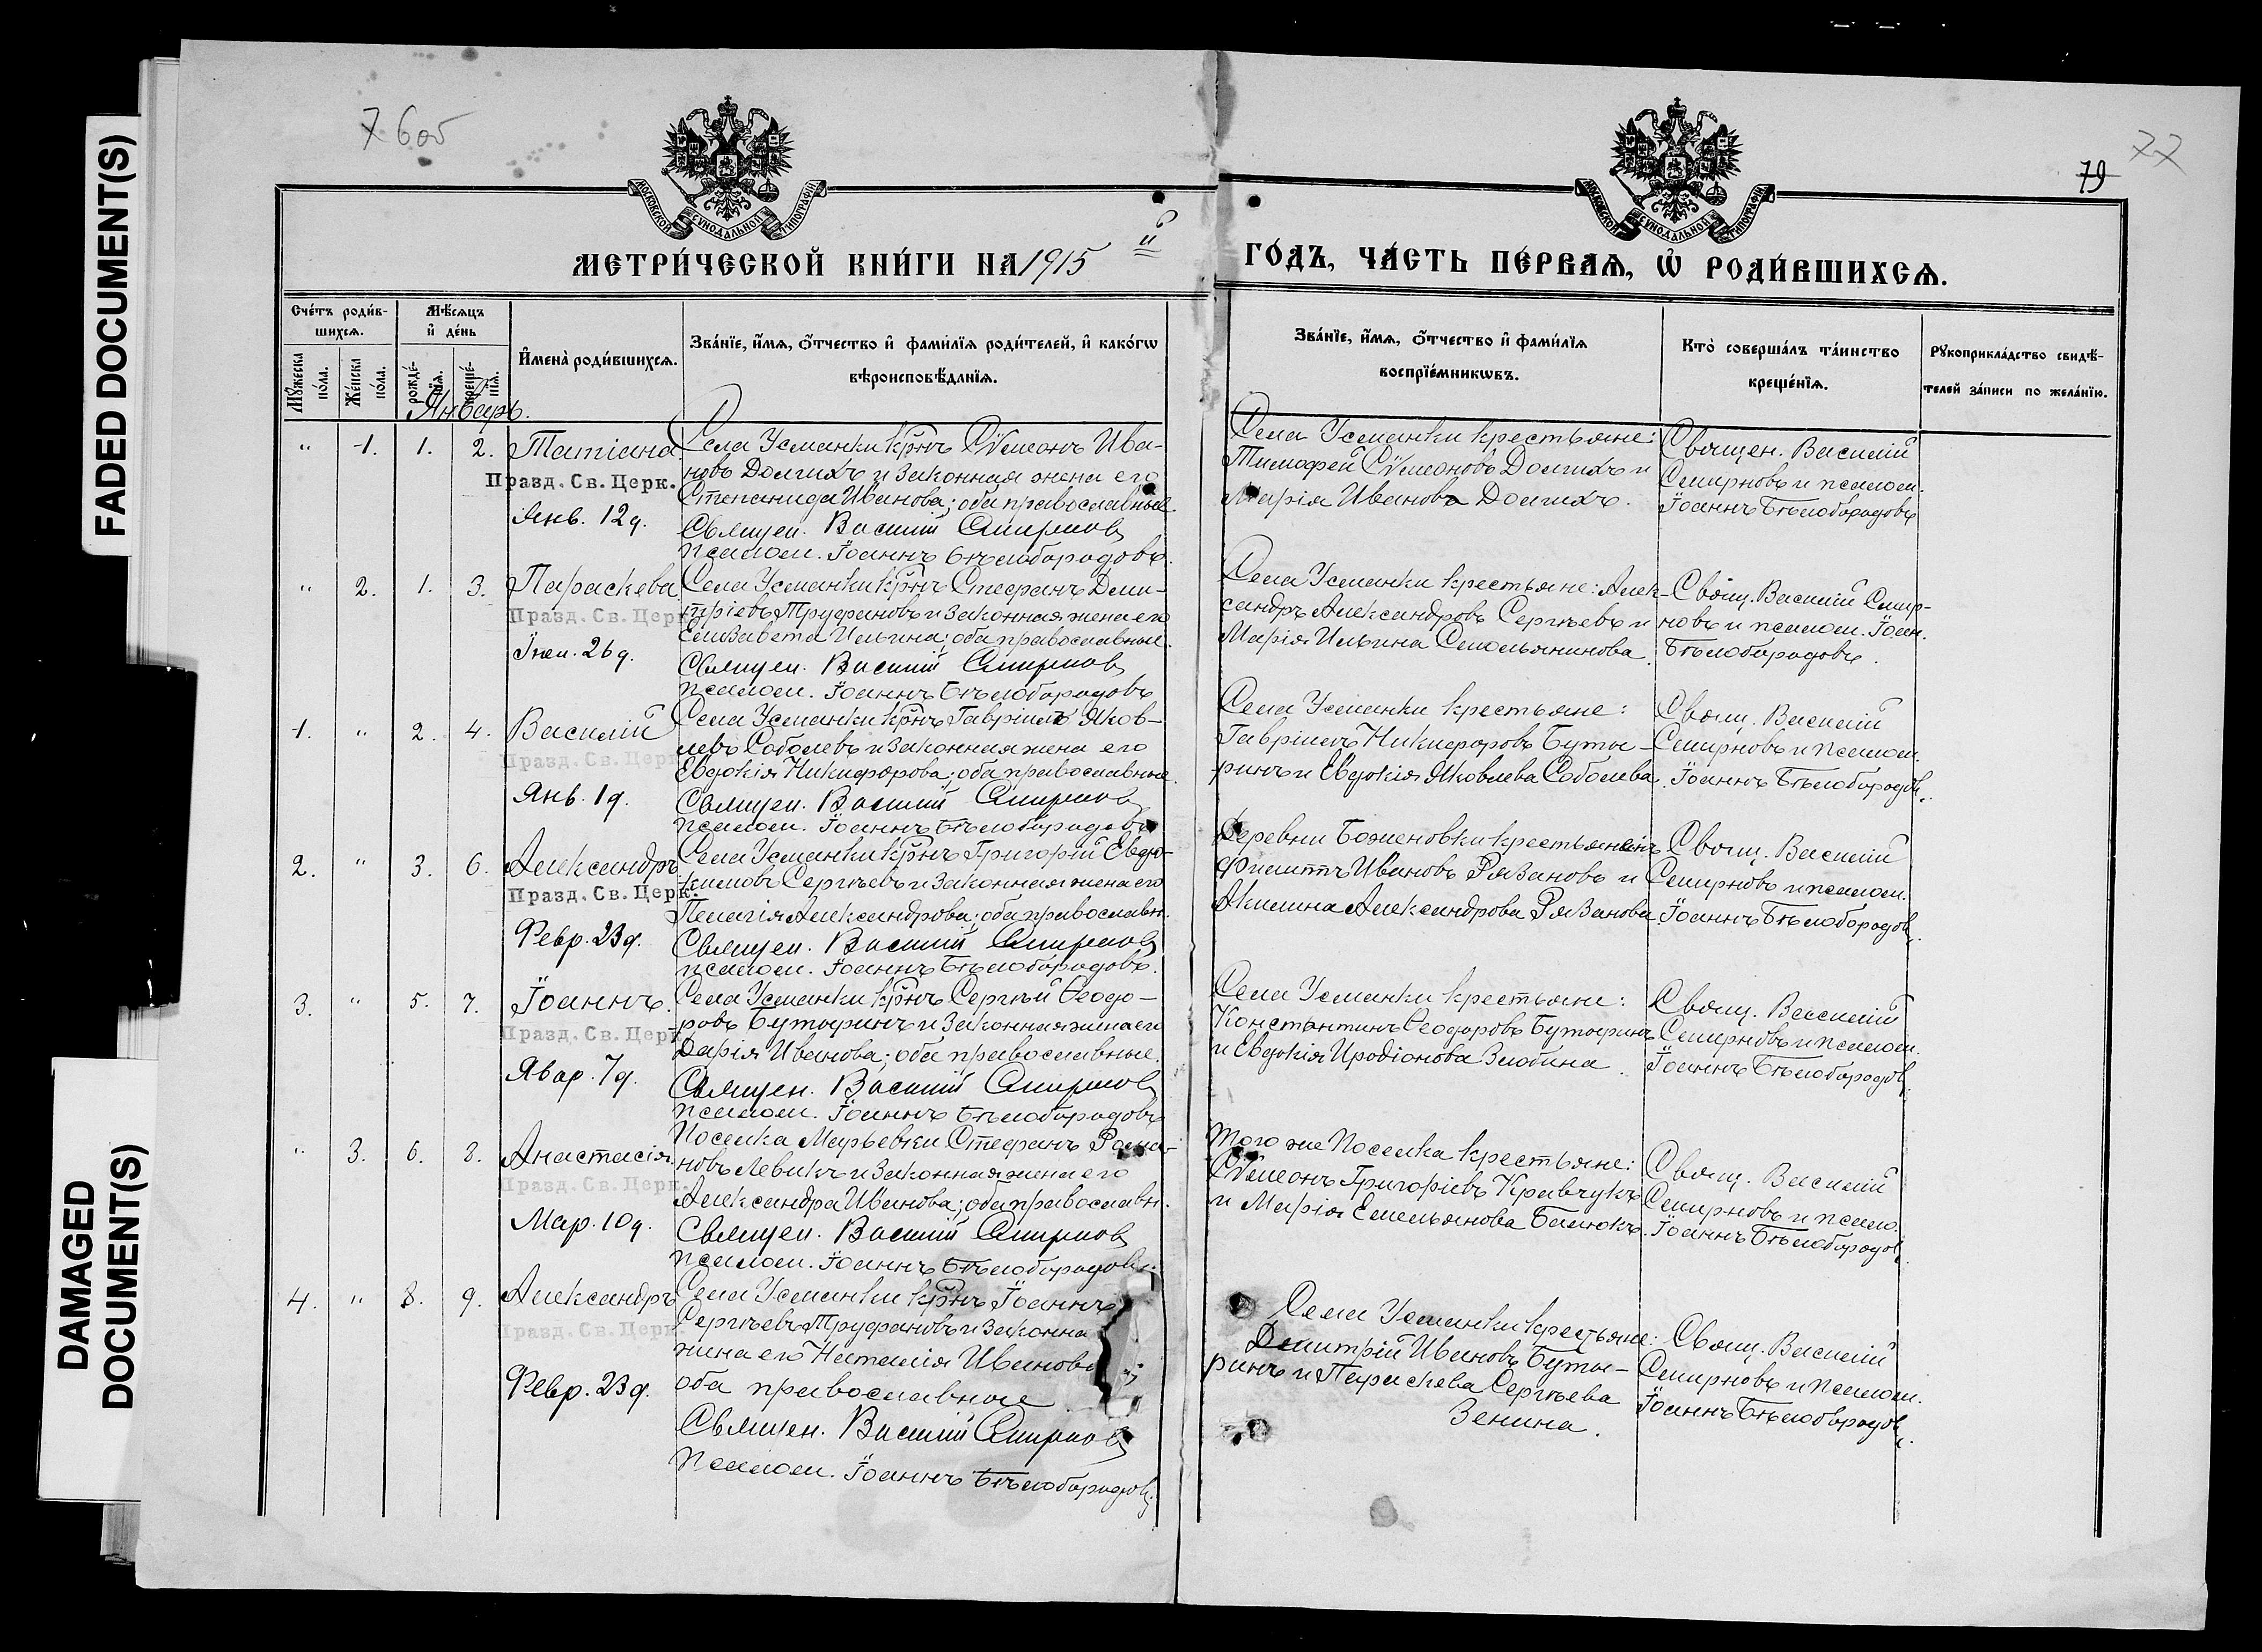 FADED DOCUMENT(S)
DAMAGED
DOCUMENT(S)
76об
77
79
МОСКОВСКОЙ СѴНОДАЛЬНОЙ ТИПОГРАФІИ
МОСКОВСКОЙ СѴНОДАЛЬНОЙ ТИПОГРАФІИ
МЕТРИ́ЧЕСКОЙ КНИ́ГИ НА 1915 й
ГО́ДЪ, ЧА́СТЬ ПЕ́РВАѦ, Ѡ҆ РОДИ́ВШИХСѦ.
Сче́тъ роди́в-
шихсѧ.
Мꙋ́жеска
по́ла.
Же́нска
по́ла.
Мѣ́сѧцъ
и҆ де́нь
рожде́-
нїѧ.
креще́-
нїѧ.
И҆мена̀ роди́вшихсѧ.
Зва́нїе, и҆́мѧ, ѻ҆́тчество и҆ фами́лїѧ роди́телей, и҆ како́гѡ
вѣроисповѣ́данїѧ.
Зва́нїе, и҆́мѧ, ѻ҆́тчество и҆ фами́лїѧ
воспрїе́мникѡвъ.
Кто̀ соверша́лъ та́инство
креще́нїѧ.
Рꙋкоприкла́дство свидѣ́-
телей за́писи по жела́нїю.
Январь.
" 1. 1. 2. Татіана
Празд. Св. Церк.
Янв. 12 д.
Села Усманки крнъ Сѵмеонъ Ива-
новъ Долгихъ и законная жена его
Степанида Иванова; оба православные.
Священ. Василій Смирновъ
псалом. Іоаннъ Бѣлобородовъ.
Села Усманки крестьяне:
Тимофей Сѵмеоновъ Долгихъ и
Марія Иванова Долгихъ.
Священ. Василій
Смирновъ и псалом.
Іоаннъ Бѣлобородовъ
" 2. 1. 3. Параскева
Празд. Св. Церк.
Іюл. 26 д.
Села Усманки крнъ Стефанъ Дми-
тріевъ Труфановъ и законная жена его
Елизавета Ильина; оба православные.
Священ. Василій Смирновъ
псалом. Іоаннъ Бѣлобородовъ
Села Усманки крестьяне: Алек-
сандръ Александровъ Сергѣевъ и
Марія Ильина Смольянинова.
Свящ. Василій Смир-
новъ и псалом. Іоан.
Бѣлобородовъ.
1. " 2. 4. Василій
Празд. Св. Церк.
Янв. 1 д.
Села Усманки крнъ Гавріилъ Яков-
левъ Соболевъ и законная жена его
Евдокія Никифорова; оба православные.
Священ. Василій Смирновъ
псалом. Іоаннъ Бѣлобородовъ
Села Усманки крестьяне:
Гавріилъ Никифоровъ Буты-
ринъ и Евдокія Яковлева Соболева.
Свящ. Василій
Смирновъ и псалом.
Іоаннъ Бѣлобородов.
2. " 3. 6. Александръ
Празд. Св. Церк.
Февр. 23 д.
Села Усманки крнъ Григорій Евдо-
кимовъ Сергѣевъ и законная жена его
Пелагія Александрова; оба православн.
Священ. Василій Смирновъ
псалом. Іоаннъ Бѣлобородовъ.
Деревни Боженовки крестьянинъ
Филиппъ Ивановъ Рязановъ и
Акилина Александрова Рязанова.
Свящ. Василій
Смирновъ и псалом.
Іоаннъ Бѣлобородов.
3. " 5. 7. Іоаннъ.
Празд. Св. Церк.
Явар. 7 д.
Села Усманки крнъ Сергѣй Ѳеодо-
ровъ Бутыринъ и законная жена его
Дарія Иванова; оба православные.
Священ. Василій Смирновъ
псалом. Іоаннъ Бѣлобородовъ
Села Усманки крестьяне:
Константинъ Ѳеодоровъ Бутыринъ
и Евдокія Иродіонова Злобина.
Свящ. Василій
Смирновъ и псалом.
Іоаннъ Бѣлобородов.
" 3. 6. 8. Анастасія.
Празд. Св. Церк.
Мар. 10 д.
Поселка Марьевки Стефанъ Рома-
новъ Левикъ и законная жена его
Александра Иванова; оба православн.
Священ. Василій Смирновъ
псалом. Іоаннъ Бѣлобородовъ.
Того же поселка крестьяне:
Сѵмеонъ Григоріевъ Кравчукъ
и Марія Емельянова Балюкъ.
Свящ. Василій
Смирновъ и псало.
Іоаннъ Бѣлобородов.
4. " 8. 9. Александръ
Празд. Св. Церк.
Февр. 23 д.
Села Усманки крнъ Іоаннъ
Сергѣевъ Труфановъ и законна
жена его Наталія Иванова
оба православные
Священ. Василій Смирновъ
Псалом. Іоаннъ Бѣлобородовъ.
Села Усманки крестьяне:
Димитрій Ивановъ Буты-
ринъ и Параскева Сергѣева
Зенина.
Свящ. Василій
Смирновъ и псалом.
Іоаннъ Бѣлобородов.